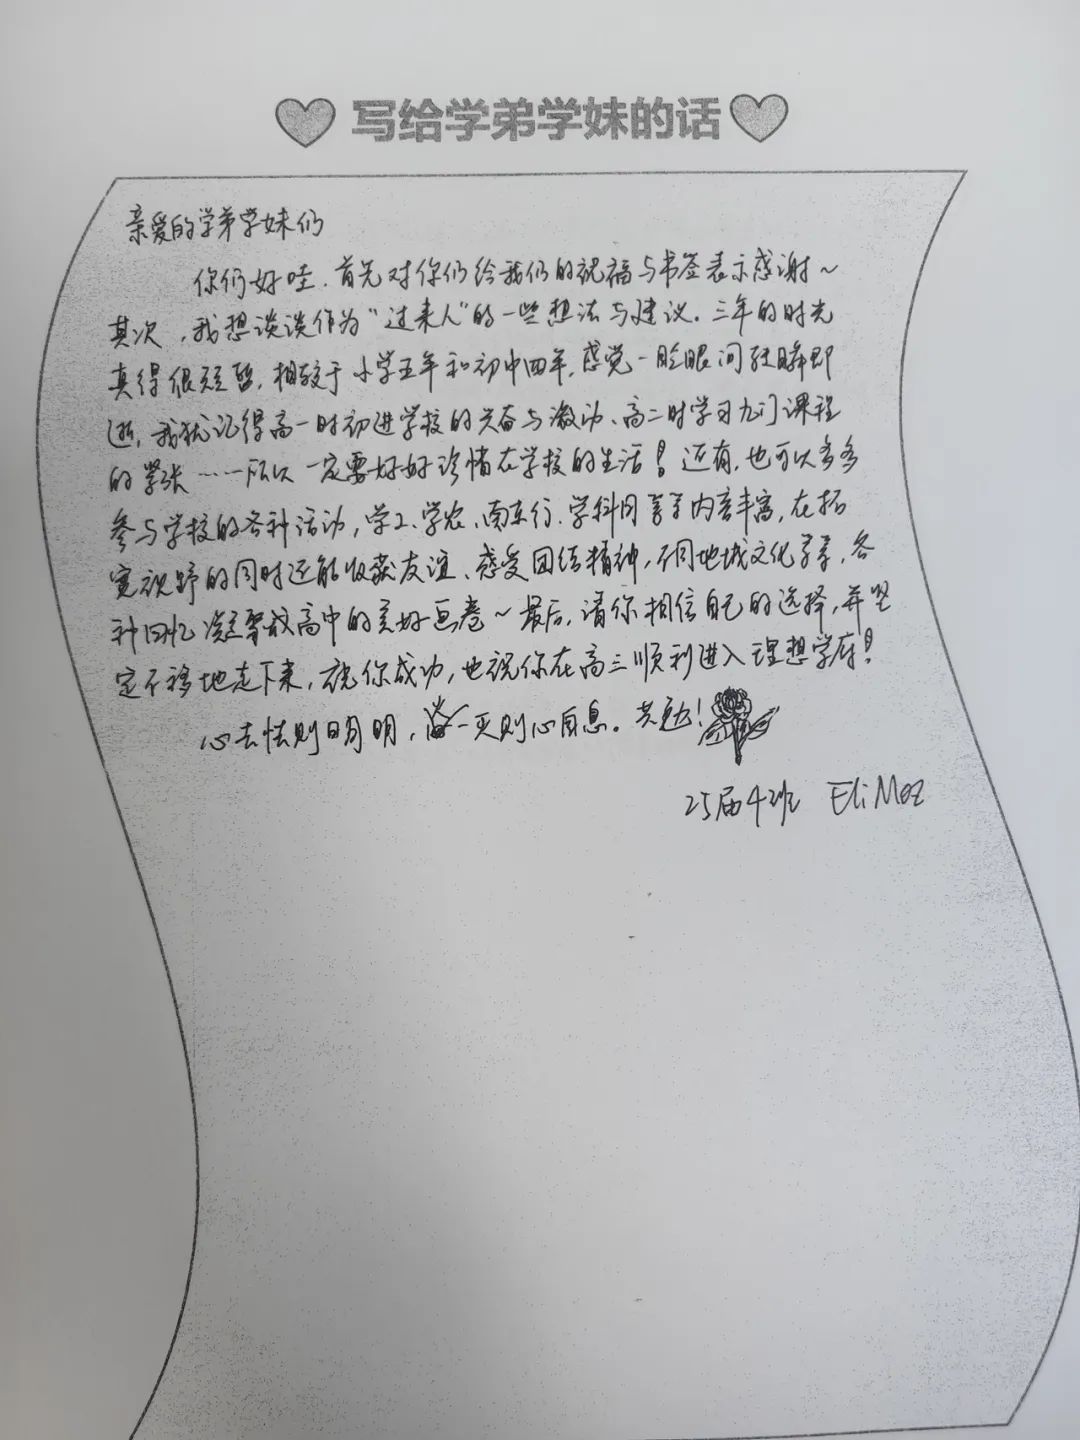 写给学弟学妹的话
亲爱的学弟学妹们
你们好哇.首先对你们给我们的祝福与书签表示感谢~
其次,我想谈谈作为“过来人”的一些想法与建议.三年的时光
真得很短暂,相较于小学五年和初中四年,感觉一眨眼间转瞬即
逝,我犹记得高一时初进学校的兴奋与激动、高二时学习九门课程
的紧张……所以一定要好好珍惜在学校的生活!还有,也可以多多
参与学校的各种活动,学工、学农、南东行、学科周等等内容丰富,在拓
宽视野的同时还能收获友谊、感受团结精神,不同地域文化等等,各
种回忆凝聚成高中的美好画卷~最后,请你相信自己的选择,并坚
定不移地走下来,祝你成功,也祝你在高三顺利进入理想学府!
心去怯则明,一灭则心自息。共勉!
25届4班 Eli Moz